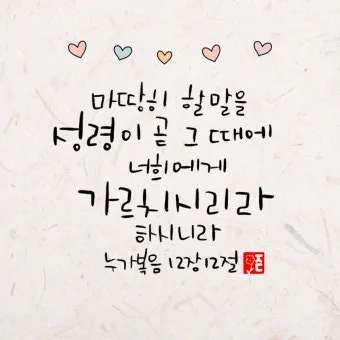 마땅히 할 말을
성령이 곧 그 때에
너희에게
가르치시리라
하시니라
누가복음 12장12절